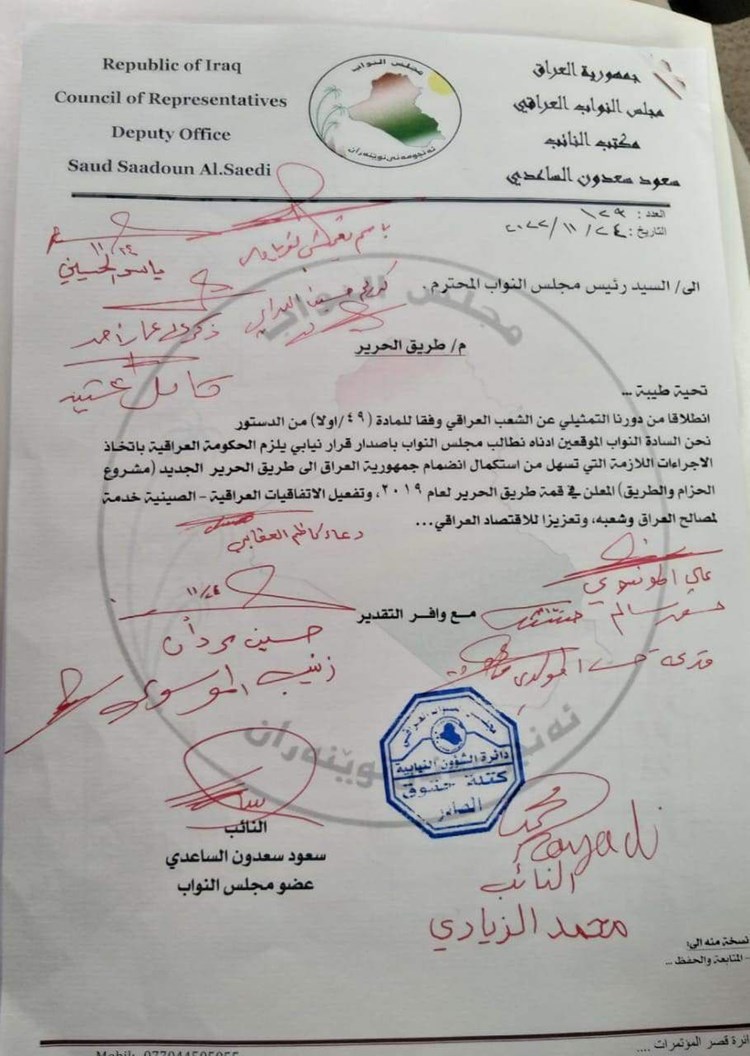 Republic of Iraq
Council of Representatives
Deputy Office
Saud Saadoun Al.Saedi
مجلس النواب
ئەنجومەنی نوێنەران
جمهورية العراق
مجلس النواب العراقي
مكتب النائب
سعود سعدون الساعدي
العدد: ١٢٩
التاريخ: ٢٤/ ١١ /٢٠٢٢
١١/٢٤
ياسر الحسيني
الى/ السيد رئيس مجلس النواب المحترم.
م/ طريق الحرير
تحية طيبة ...
انطلاقا من دورنا التمثيلي عن الشعب العراقي وفقا للمادة (٤٩/اولا) من الدستور
نحن السادة النواب الموقعين ادناه نطالب مجلس النواب باصدار قرار نيابي يلزم الحكومة العراقية باتخاذ
الاجراءات اللازمة التي تسهل من استكمال انضمام جمهورية العراق الى طريق الحرير الجديد (مشروع
الحزام والطريق) المعلن في قمة طريق الحرير لعام ٢٠١٩، وتفعيل الاتفاقيات العراقية - الصينية خدمة
لمصالح العراق وشعبه، وتعزيزا للاقتصاد العراقي...
دعاء كاظم العقابي
١١/٢٤
مع وافر التقدير
حسين مردان
زينب الموسوي
مجلس النواب العراقي
دائرة الشؤون النيابية
كتلة حقوق
الصادر
النائب
سعود سعدون الساعدي
عضو مجلس النواب
محمد
Zayadi
النائب
محمد الزيادي
نسخة منه الى:
- المتابعة والحفظ ..
مجلس النواب
ئەنجومەنی نوێنەران
قصر المؤتمرات ....